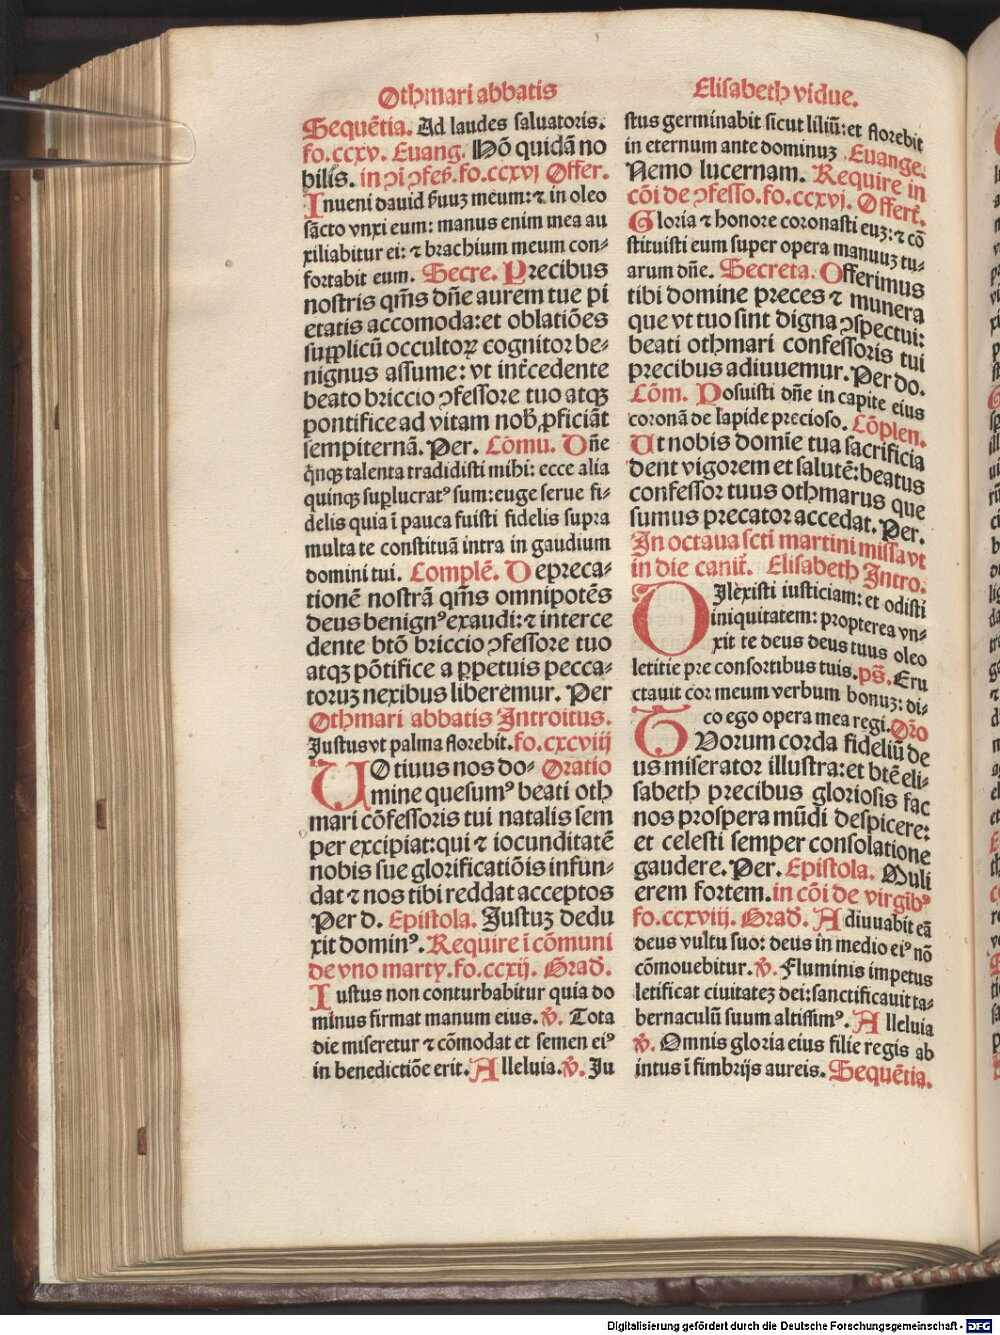 Othmari abbatis
Sequētia. Ad laudes saluatoris.
fo.ccxv. Euang. Hō quidā no
bilis. in ꝯi ꝯfes̄.fo.ccxvj Offer.
Inueni dauid ẜuuꝫ meum: ⁊ in oleo
sācto vnxi eum: manus enim mea au
xiliabitur ei: ⁊ brachium meum con⸗
fortabit eum. Secre. Precibus
nostris qm̄s dn̄e aurem tue pi
etatis accomoda:et oblatiōes
supplicū occultoꝝ cognitor be⸗
nignus assume: vt int̄cedente
beato briccio ꝯfessore tuo atqꝫ
pontifice ad vitam nob̄ ꝓficiāt
sempiternā. Per. Cōmu. Dn̄e
q̄nqꝫ talenta tradidisti mihi: ecce alia
quinqꝫ suꝑlucratꝰ sum:euge serue fi⸗
delis quia ī pauca fuisti fidelis supra
multa te constituā intra in gaudium
domini tui. Complē. Depreca⸗
tionē nostrā qm̄s omnipotēs
deus benignꝰ exaudi:⁊ interce
dente btō briccio ꝯfessore tuo
atqꝫ pōtifice a ꝑpetuis pecca⸗
toruꝫ nexibus liberemur. Per
Othmari abbatis Introitus.
Justus vt palma florebit.fo.cxcviij
UOtiuus nos do⸗ Oratio
mine quesumꝰ beati oth
mari cōfessoris tui natalis sem
per excipiat:qui ⁊ iocunditatē
nobis sue glorificatiōis infun⸗
dat ⁊ nos tibi reddat acceptos
Per d. Epistola. Justuꝫ dedu
xit dominꝰ. Require ī cōmuni
de vno marty.fo.ccxij. Grad̄.
Iustus non conturbabitur quia do
minus firmat manum eius. v̄. Tota
die miseretur ⁊ cōmodat et semen eiꝰ
in benedictiōe erit. Alleluia. v̄. Ju
Elisabeth vidue.
stus germinabit sicut liliū:et florebit
in eternum ante dominuꝫ. Euange.
Nemo lucernam. Require in
cōi de ꝯfesso.fo.ccxvj. Offert̄.
Gloria ⁊ honore coronasti euꝫ:⁊ cō
stituisti eum super opera manuuꝫ tu⸗
arum dn̄e. Secreta. Offerimus
tibi domine preces ⁊ munera
que vt tuo sint digna ꝯspectui:
beati othmari confessoris tui
precibus adiuuemur. Per do.
Cōm. Posuisti dn̄e in capite eius
coronā de lapide precioso. Cōplen.
Ut nobis domīe tua sacrificia
dent vigorem et salutē:beatus
confessor tuus othmarus que
sumus precator accedat. Per.
In octaua scti martini missa vt
in die canit̄. Elisabeth Intro.
DIlexisti iusticiam: et odisti
iniquitatem: propterea vn⸗
xit te deus deus tuus oleo
letitie pre consortibus tuis. ps̄. Eru
ctauit cor meum verbum bonuꝫ: di⸗
co ego opera mea regi. Or̄o
TUorum corda fideliū de
us miserator illustra:et btē eli⸗
sabeth precibus gloriosis fac
nos prospera mūdi despicere:
et celesti semper consolatione
gaudere. Per. Epistola. Muli
erem fortem.in cōi de virgib̄ꝰ
fo.ccxviij. Grad̄. Adiuuabit eā
deus vultu suo: deus in medio eiꝰ nō
cōmouebitur. v̄. Fluminis impetus
letificat ciuitateꝫ dei:sanctificauit ta⸗
bernaculū suum altissimꝰ. Alleluia
v̄. Omnis gloria eius filie regis ab
intus ī fimbrijs aureis. Sequētia.
Digitalisierung gefördert durch die Deutsche Forschungsgemeinschaft - DFG